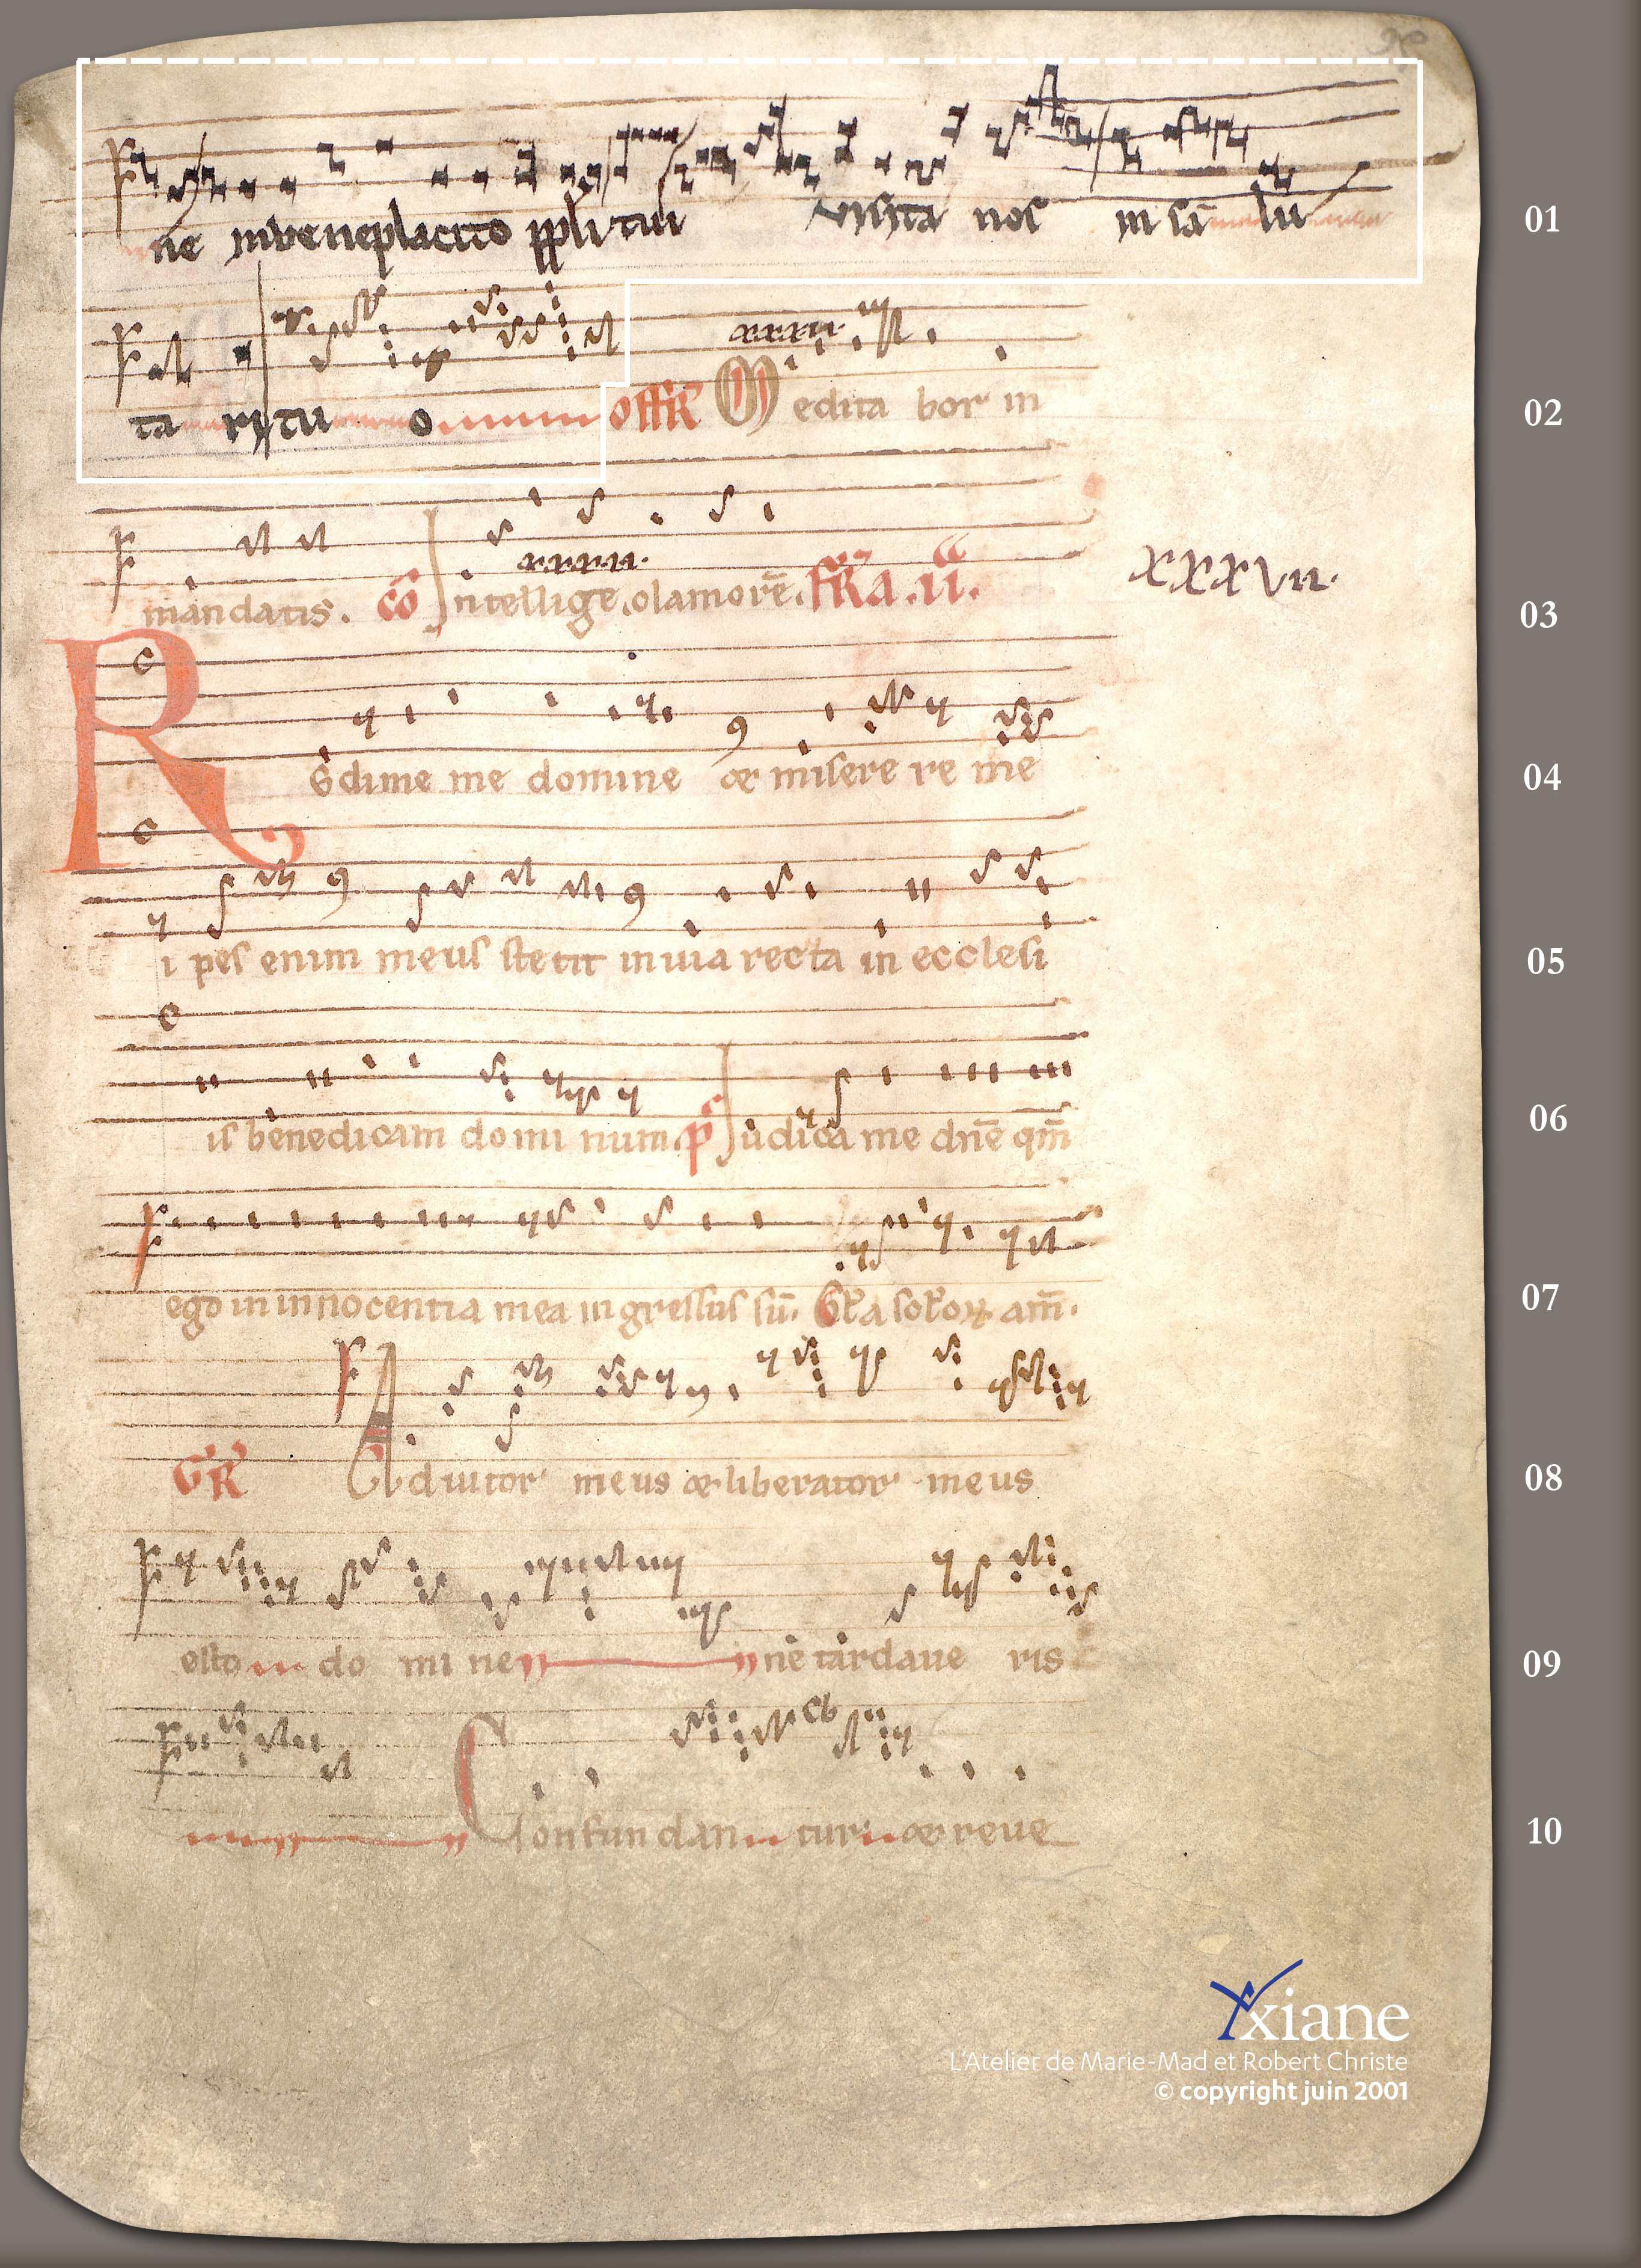 ne in beneplacito ppli tui visita nos in sa lu 01
ta ri tu o offR Medita bor in 02
xxxvii.
mandatis. co Intellige clamorē. fR̄a .ii. 03
xxxvii.
xxxvii.
Redime me domine & miserere me 04
i pes enim meus stetit in uia recta in ecclesi 05
is benedicam dominum. p̄s Iudica me dn̄e qm̄ 06
ego in innocentia mea ingressus sū. am̄. 07
GR Adiutor meus & liberator meus 08
esto domine ne tardaue ris 09
Confundantur & reue 10
Yxiane
L'Atelier de Marie-Mad et Robert Christe
© copyright juin 2001